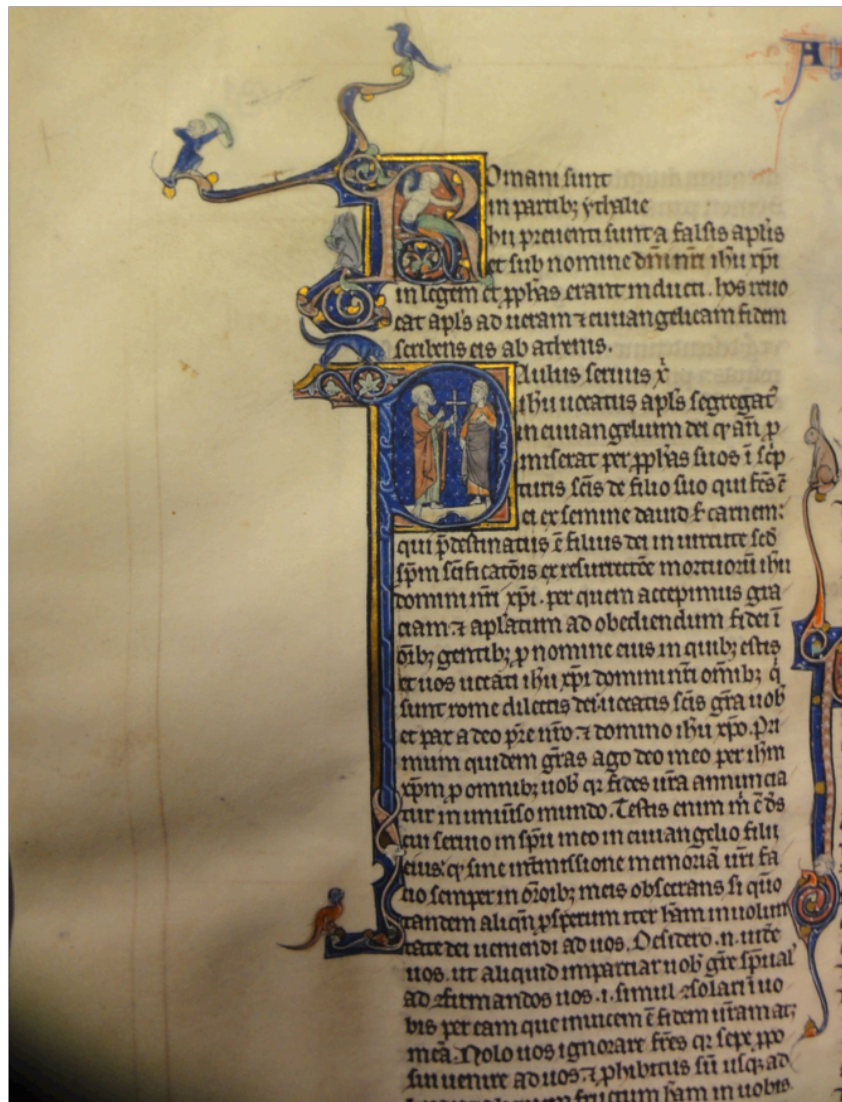 A
Romani sunt
in partibȝ ythalie
hii preuenti sunt a falsis apl̄is
et sub nomine dn̄i nr̄i ih̄u xp̄i
in legem et ꝓph̄as erant inducti. hos reuo
cat apl̄s ad ueram ⁊ euuangelicam fidem
scribens eis ab athenis.
Paulus seruus x̄
ih̄u uocatus apl̄s segregat᷒
in euuangelium dei qᷓ an̄ ꝓ
miserat per ꝓph̄as suos ī sc̄p
turis sc̄is de filio suo qui fc̄s ē
ei ex semine dauid s̄ carnem:
qui p̄destinatus ē filius dei in uirtute scd̄
sp̄m sc̄ificatōis ex resurrectōe mortuoꝝ ih̄u
domini nr̄i xp̄i. per quem accepimus gra
ciam ⁊ apl̄atum ad obediendum fidei ī
om̄ibȝ gentibȝ ꝓ nomine eius in quibȝ estis
et uos uocati ih̄u xp̄i domini nr̄i om̄ibȝ q̇
sunt rome dilectis dei uocatis sc̄is gr̄a uob̄
et pax a deo p̄re nr̄o ⁊ domino ih̄u xp̄o. Pri
mum quidem gr̄as ago deo meo per ih̄m
xp̄m ꝓ omnibȝ uob̄ qꝛ fides ur̄a annuncia
tur in uniūso mundo. Testis enim m̄ ē d̄s
cui seruio in sp̄u meo in euuangelio filii
eius: qᷓ sine int̄missione memoriā ur̄i fa
cio semper in or̄oībȝ meis obsecrans si quō
tandem aliqn̄ ꝓsperum iter h̄am in uolun
tate dei ueniendi ad uos. Desidero .n. uid̄e
uos. ut aliquid impartiar uob̄ gr̄e sp̄ual̄
ad ꝯfirmandos uos .i. simul ꝯsolari ī uo
bis per eam que inuicem ē fidem ur̄am atȝ
meā. Nolo uos ignorare fr̄es qꝛ sepe ꝓpo
sui uenire ad uos ⁊ ꝓhibitus sū usqȝ ad
fructum h̄am in uobis